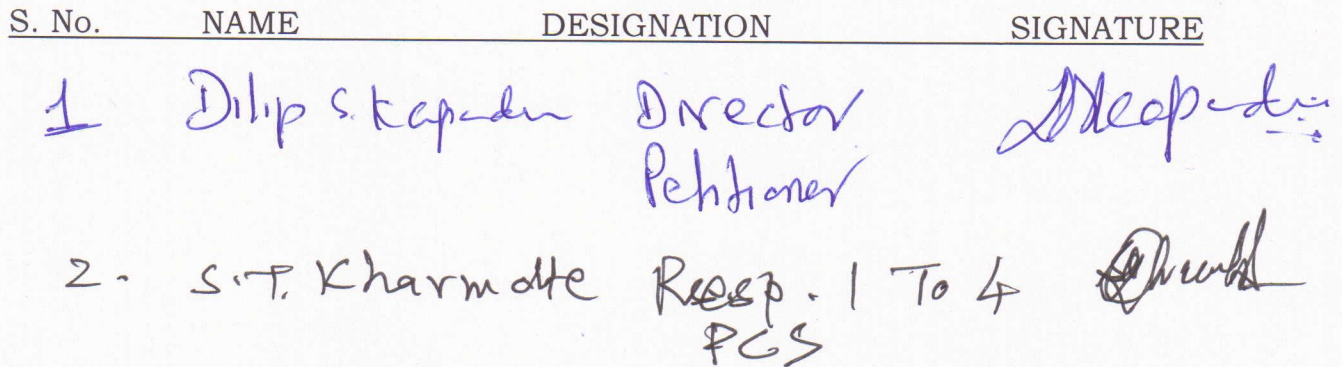 S. No. NAME DESIGNATION SIGNATURE
1 Dilip S. Kapadia Director
Petitioner
2. S.T. Kharmate Resp. 1 To 4
PCS